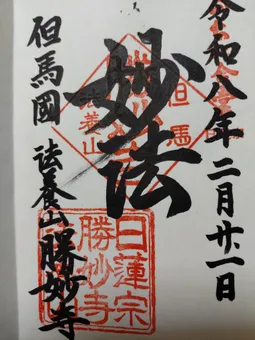 令和八年二月廿一日
妙法
但馬
法養山
日蓮宗
勝妙寺
但馬國 法養山 勝妙寺